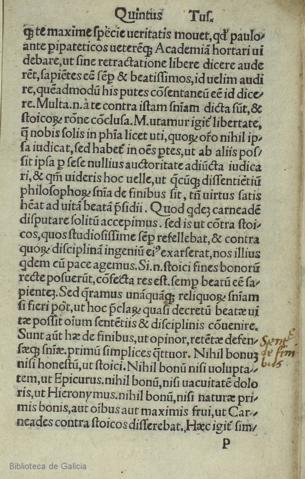 Quintus Tus.
q̃ te maxime ſpēcie ueritatis mouet, qd' paulo
ante pipateticos ueterēq; Academiā hortari ui
debare, ut ſine retractatione libere dicere aude
rēt, ſapiētes eē ſēp & beatiſſimos, id uelim audi
re, quēadmodū his putes cōſentaneū eē id dice
re. Multa .n. à te contra iſtam ſniam dicta ſūt, &
ſtoicoꝝ rōne cōcluſa. M. utamur igit' libertate,
q̃ nobis ſolis in phīa licet uti, quoꝝ oŕo nihil ip
ſa iudicat, ſed habet' in oēs ptes, ut ab aliis poſ
ſit ipſa p ſeſe nullius auctoritate adiūcta iudica
ri, & qm̄ uideris hoc uelle, ut q̄cūq; diſſentiētiū
philoſophoꝝ ſnīa de finibus ſit, tn̄ uirtus ſatis
hēat ad uitā beatā pſidii. Quod qdez carneadē
diſputare ſolitū accepimus. ſed is ut cōtra ſtoi
cos, quos ſtudioſiſſime ſēp refellebat, & contra
quoꝝ diſciplinā ingeniū ei' exarſerat, nos illius
qdem cū pace agemus. Si .n. ſtoici fines bonorū
recte poſuerūt, cōfecta res eſt. ſemp beatū eē ſa
pientez. Sed q̄ramus unāquāq; reliquoꝝ ſniam
ſi fieri pōt, ut hoc p̄claꝝ quaſi decretū beatæ ui
tæ poſſit oium ſentētiis & diſciplinis cōuenire.
Sunt aūt hæ de finibus, ut opinor, retētæ defen
ſæq; ſniæ. primū ſimplices q̄ttuor. Nihil bonuz
niſi honeſtū, ut ſtoici. Nihil bonū niſi uolupta
tem, ut Epicurus. nihil bonū, niſi uacuitatē dolo
ris, ut Hieronymus. nihil bonū, niſi naturæ pri
mis bonis, aut oibus aut maximis frui, ut Car
neades contra ſtoicos diſſerebat. Hæc igit' ſim
P
Biblioteca de Galicia